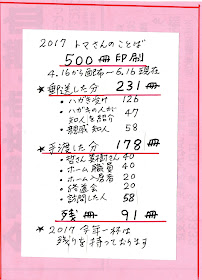 2017 トマさんのことば
500冊 印刷
4.16から配布~6.16現在
★郵送した分 231冊
・ハガキ受け 126
・ハガキの人が 47
知人を紹介
・親戚 知人 58
★手渡した分 178冊
・哲さん 基樹さん 40
・ホーム職員 40
・ホーム入居者 20
・後援会 20
・訪問した人 58
残 91冊
★2017 今年一杯は
残りを持っております